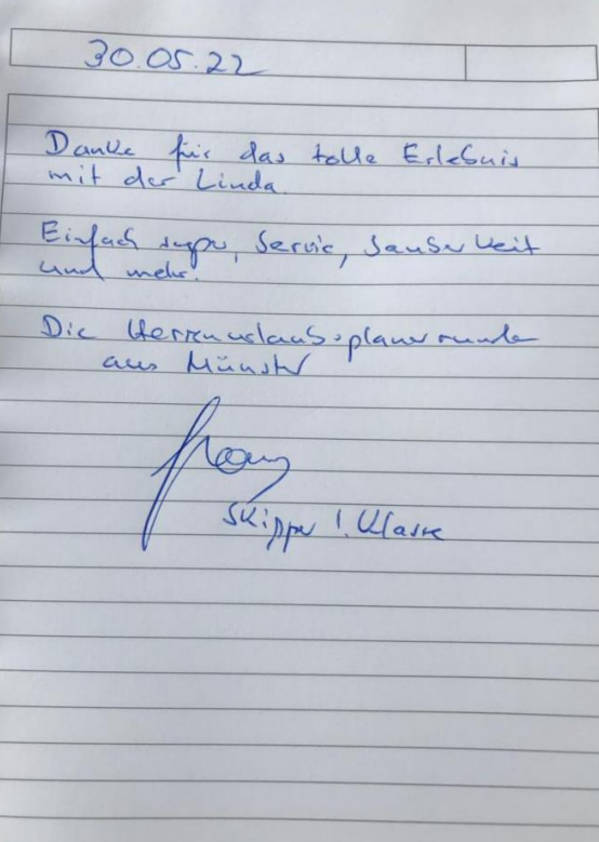 30.05.22
Danke für das tolle Erlebnis
mit der Linda.
Einfach super, Servic, Sauberkeit
und mehr.
Die Herrenurlaubsplanerrunde
aus Münster
Skipper 1. Klasse